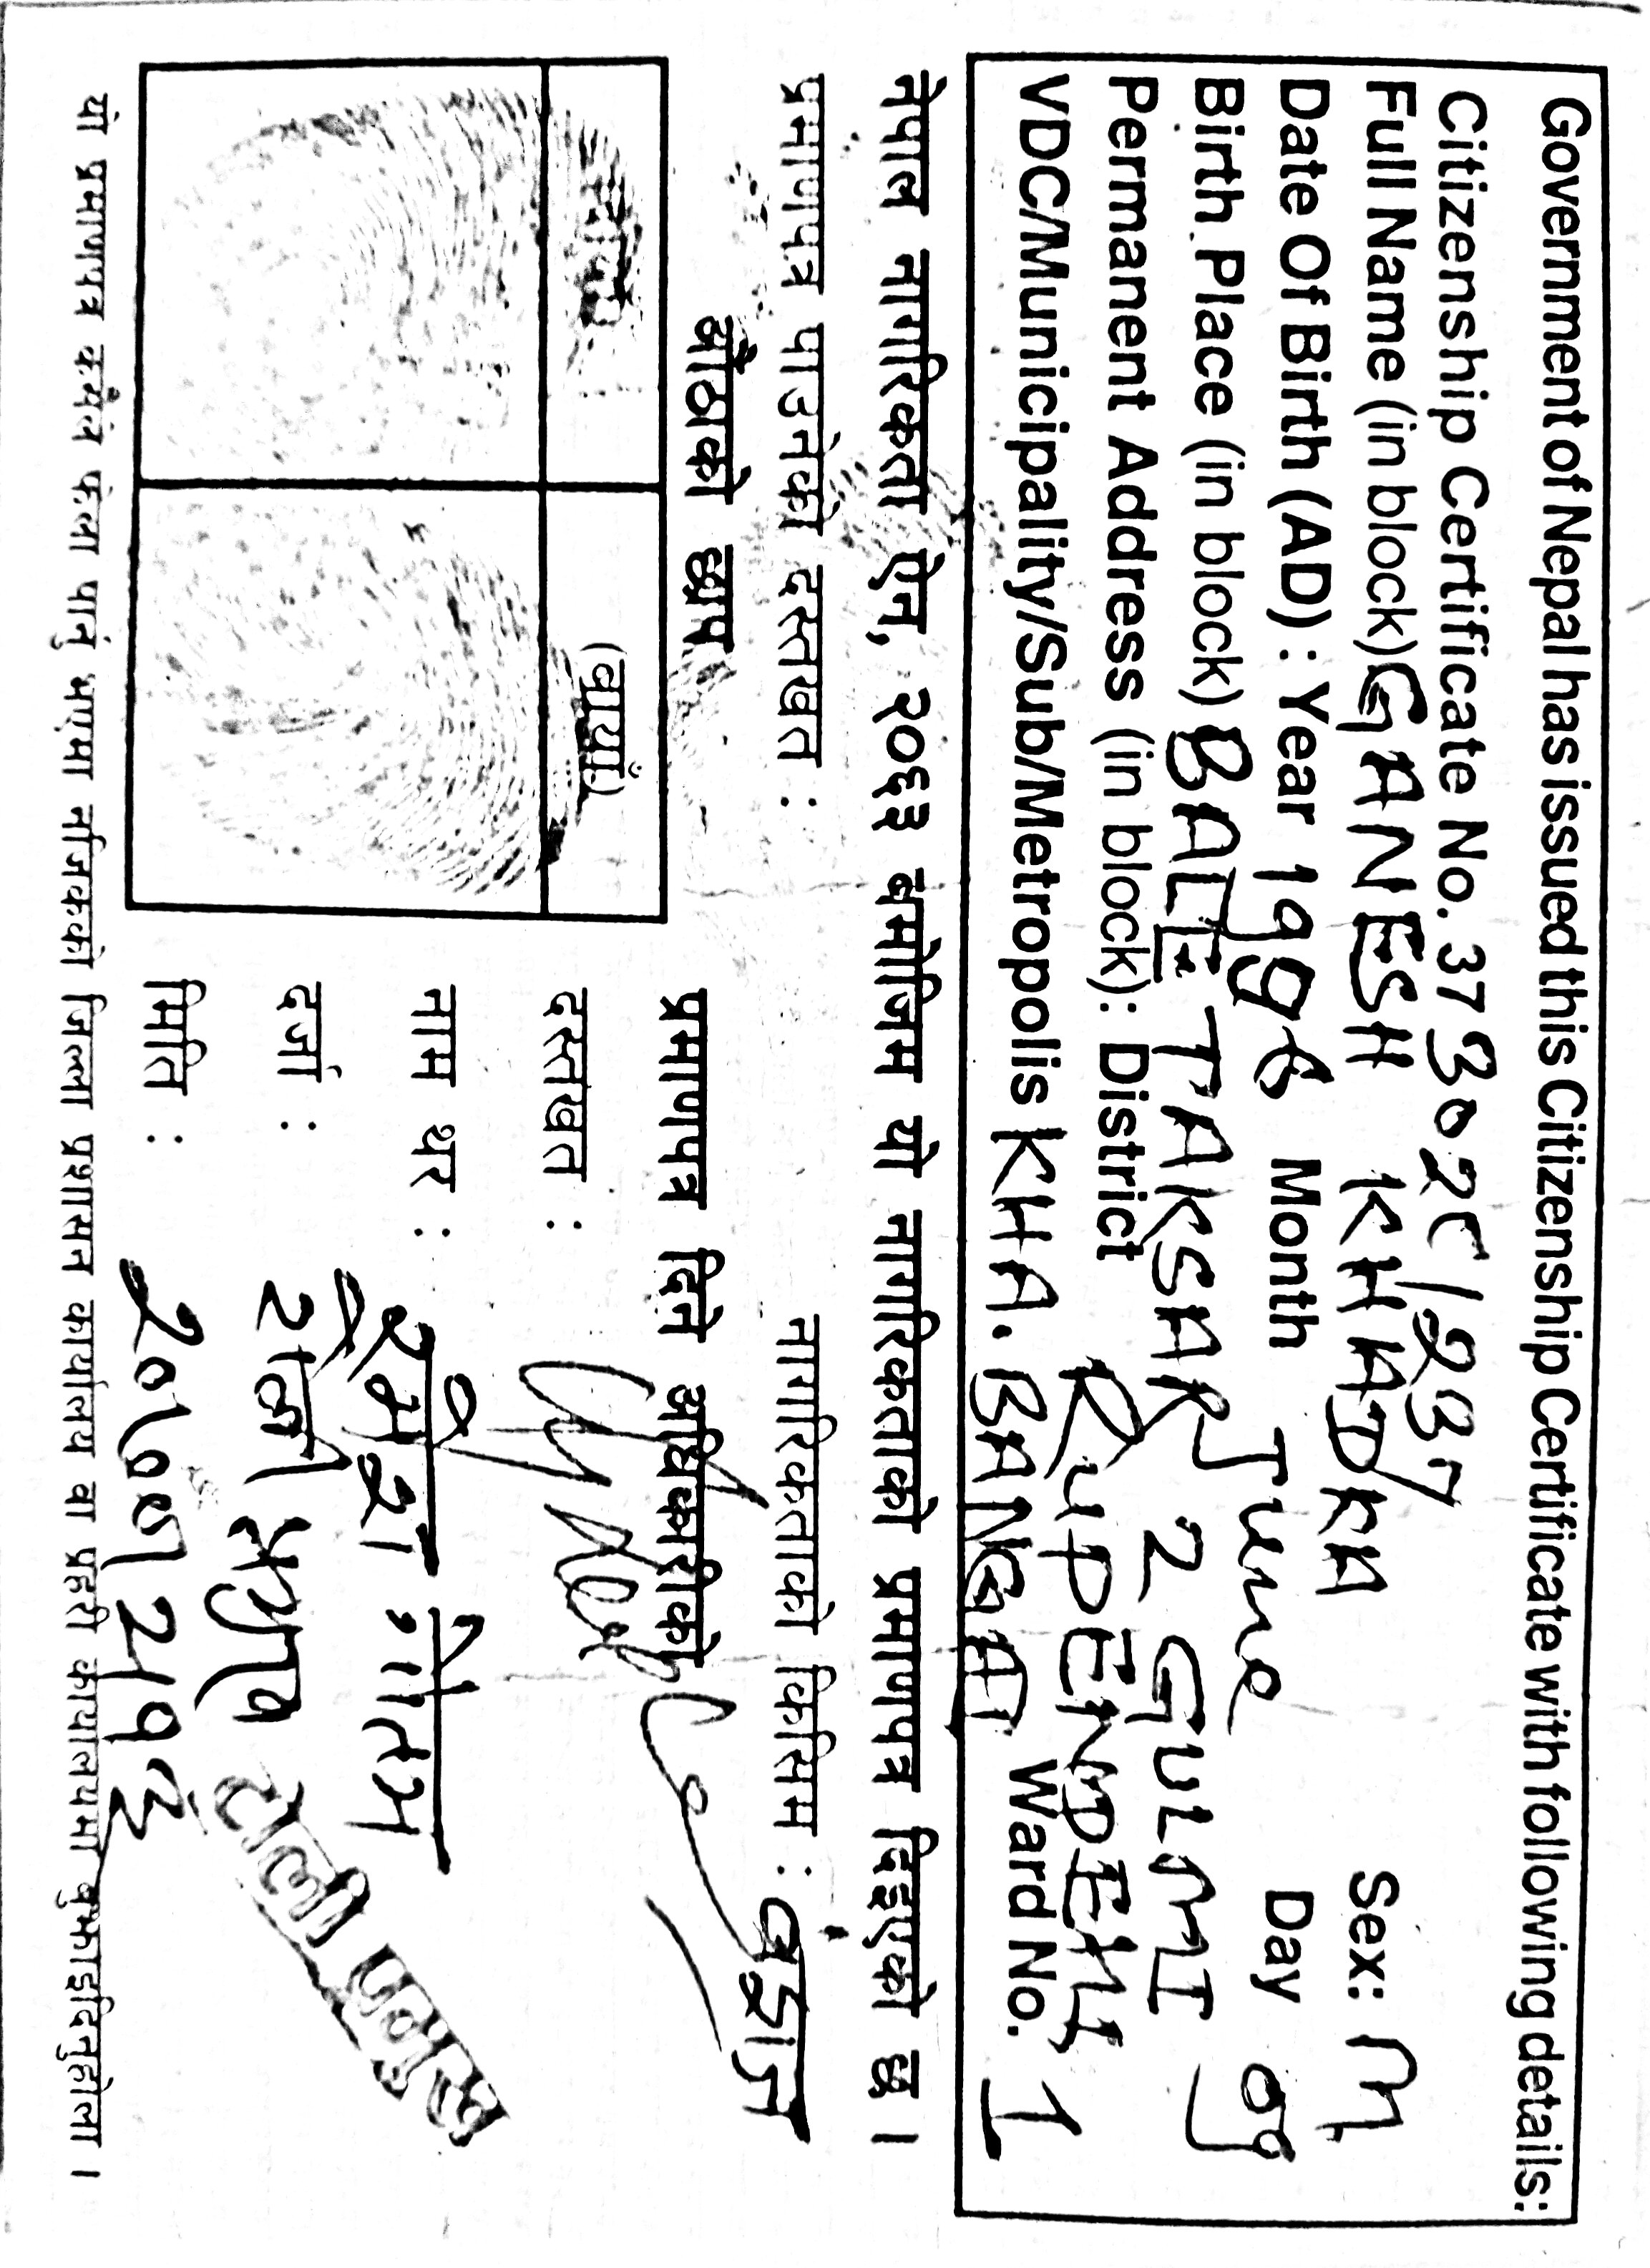 Government of Nepal has issued this Citizenship Certificate with following details:
Citizenship Certificate No. 373029/2237
Full Name (in block) GANESH KHADKA Sex: M
Date Of Birth (AD) : Year 1996 Month June Day 9
Birth Place (in block) BALETAKSAR 2 GULMI
Permanent Address (in block): District RUPENDEHI
VDC/Municipality/Sub/Metropolis KHA. BANGAI Ward No. 1
नेपाल नागरिकता ऐन, २०६३ बमोजिम यो नागरिकताको प्रमाणपत्र दिइएको छ ।
प्रमाणपत्र पाउनेको दस्तखत : नागरिकताको किसिम : वंशज
औंठाको छाप
(बायाँ)
प्रमाणपत्र दिने अधिकारीको
दस्तखत :
नाम थर : गौतम
दर्जा :
मिति : २०७१
यो प्रमाणपत्र कसैले फेला पारे भएमा नजिकको जिल्ला प्रशासन कार्यालय वा प्रहरी कार्यालयमा बुझाइदिनुहोला ।